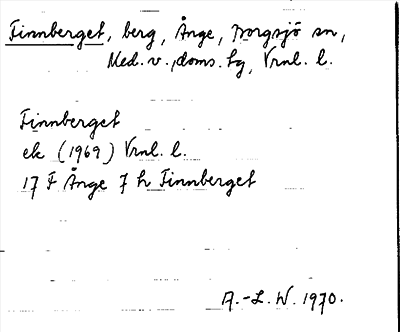 Finnberget, berg, Ånge, Borgsjö sn,
Med. v. doms. tg, Vrnl. l.
Finnberget
ek (1969) Vrnl. l.
17 F Ånge 7 h Finnberget
A.-L. W. 1970.